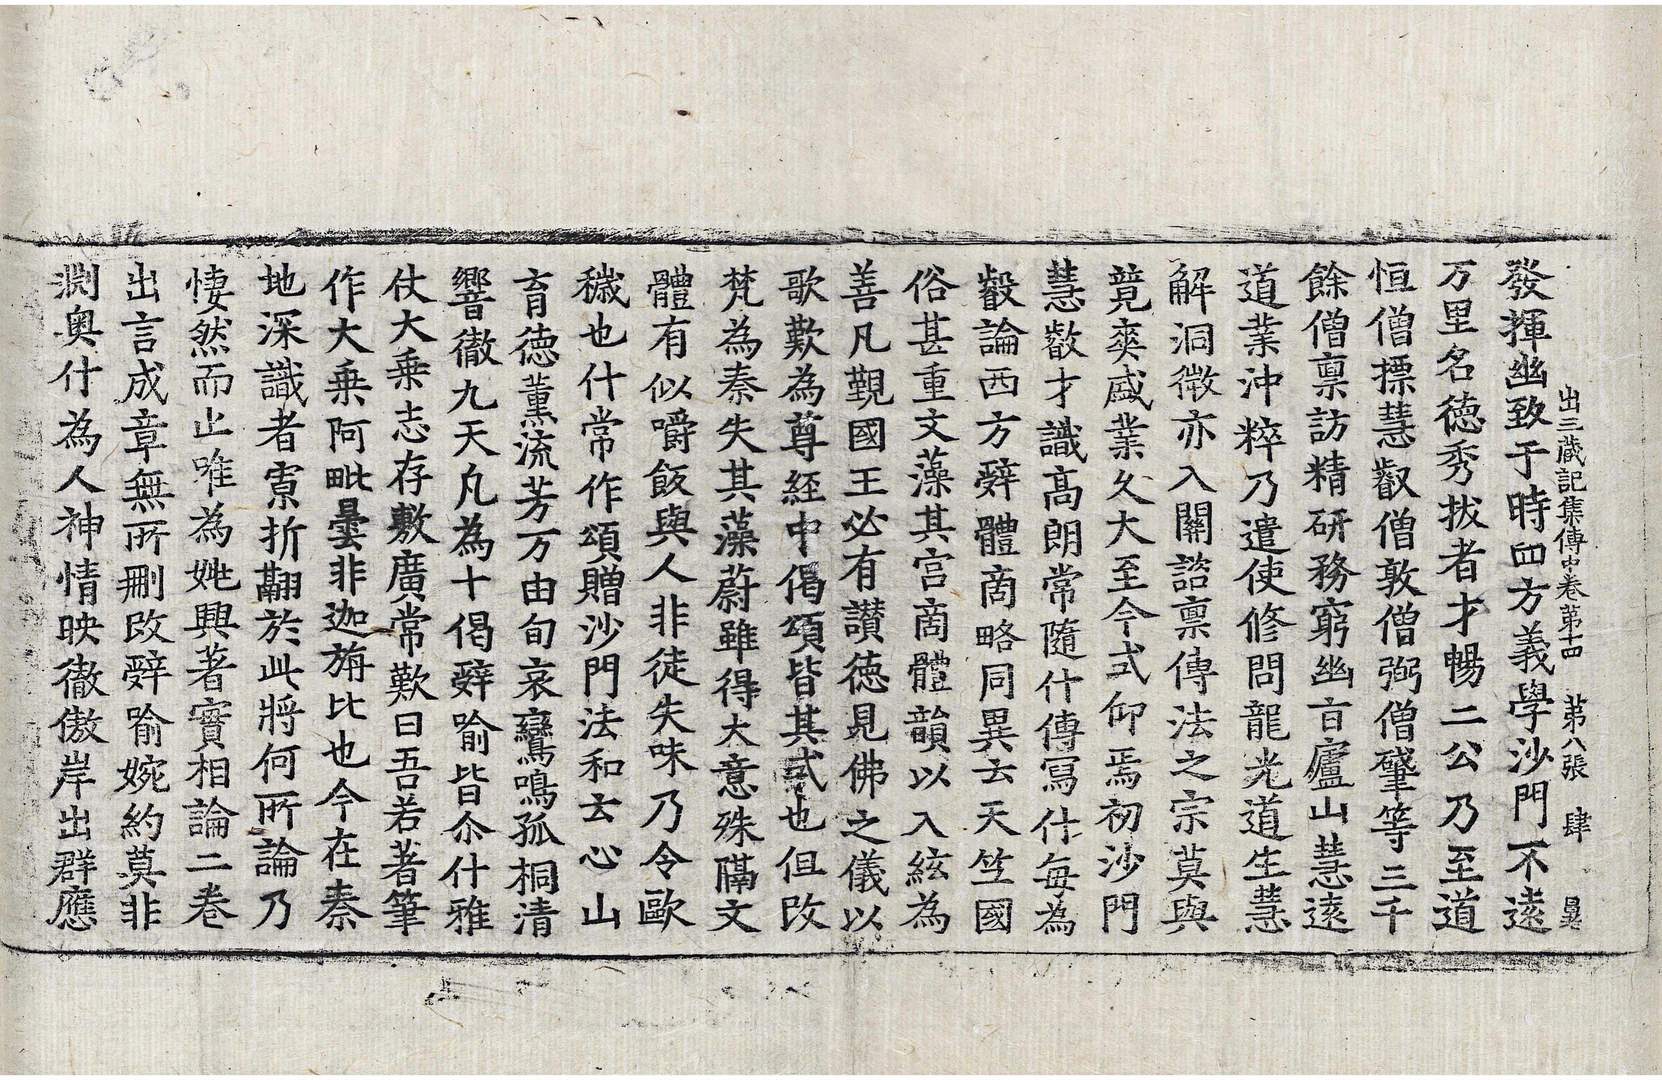 出三藏記集傳中卷第十四 第八張 肆
發揮幽致于時四方義學沙門不遠
万里名德秀拔者才暢二公乃至道
恒僧摽慧叡僧敦僧弼僧肇等三千
餘僧禀訪精研務窮幽旨廬山慧遠
道業沖粹乃遣使修問龍光道生慧
解洞微亦入關諮禀傳法之宗莫與
竟爽盛業久大至今式仰焉初沙門
慧叡才識高朗常隨什傳寫什每為
叡論西方辝體商略同異云天竺國
俗甚重文藻其宫商體韻以入絃為
善凡覲國王必有讃德見佛之儀以
歌歎為尊經中偈頌皆其式也但改
梵為秦失其藻蔚雖得大意殊隔文
體有似嚼飯與人非徒失味乃令歐
穢也什常作頌贈沙門法和云心山
育德薰流芳万由旬哀鸞鳴孤桐清
響徹九天凡為十偈辝喻皆尒什雅
仗大乗志存敷廣常歎曰吾若著筆
作大乗阿毗曇非迦旃比也今在秦
地深識者寡折翮於此將何所論乃
悽然而止唯為姚興著實相論二卷
出言成章無所刪改辝喻婉約莫非
渕奥什為人神情映徹傲岸出群應